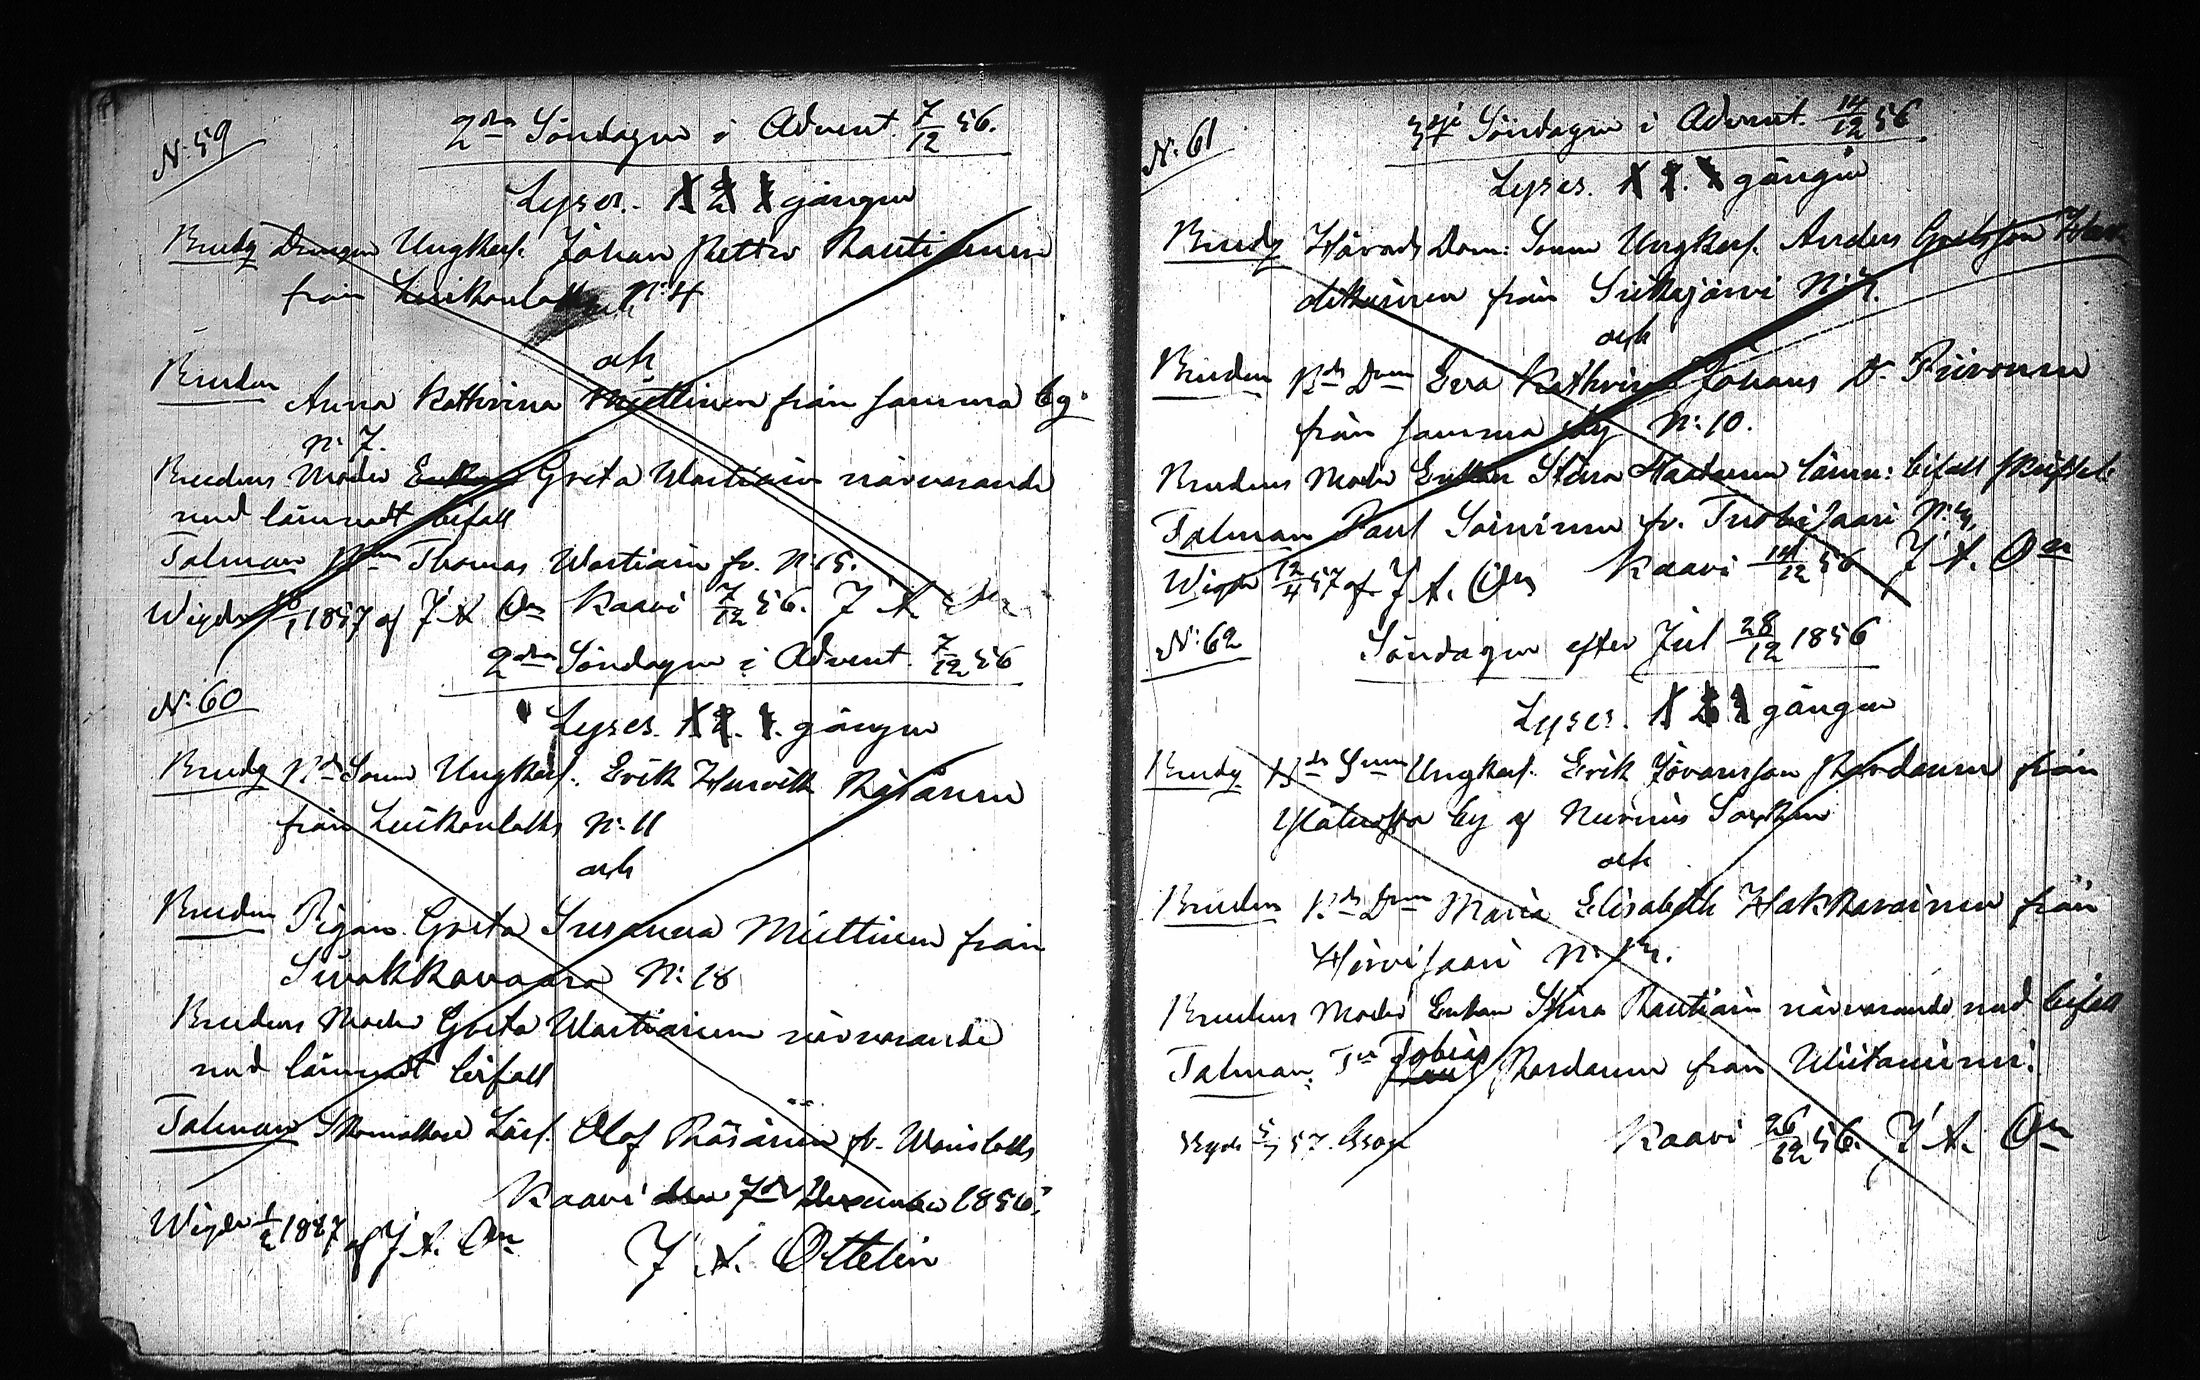 N: 59
2dra Söndagen i Advent 7/12 56.
Lyses. 1 2 3 gången
Brudg Drengen Ungkarl. Johan Petter Rautiainen
från Luikonlaks N: 4
och
Bruden Anna Kathrina Miettinen från samma by
N: 7.
Brudens Moder Enkan Greta Wartiain närvarande
med lämnadt bifall
Talman Thomas Wartiain fr. N: 15.
Wigde 1857 af J A On Kaavi 7/12 56. J A On
2dra Söndagen i Advent 7/12 56
N: 60
Lyses. 1 2. 3. gången
Brudg Bd Sonen Ungkarl. Erik Henrik Räsänen
från Luikonlaks N: 11
och
Bruden Pigan Greta Susanna Miettinen från
Sivakkavaara N: 18
Brudens Moder Greta Wartiainen närvarande
med lämnadt bifall
Talman Skomakare Lärl. Olof Räsänen fr. Wonislaks
Kaavi den 7de December 1856.
Wigde 1/2 1857 af J A. On
J A. Ottelin
N: 61
3dje Söndagen i Advent. 14/12 56
Lyses. 1 2. 3 gången
Brudg Härads Dom: Sonen Ungkarl. Anders Gretsson
från Siikajärvi N: 7.
och
Bruden Bds Dran Eva Kathrina Johans Dr Piironen
från samma by N: 10.
Brudens Moder Enkan Stina Haatanen lämn: bifall skriftel:
Talman Paul Soininen fr. Tuobisaari N: 4,
Wigde 12/4 57 af J A. On Kaavi 14/12 56 J A. On
N: 62
Söndagen efter Jul 28/12 1856
Lyses. 1 2 3 gången
Brudg Bds Sonen Ungkarl. Erik Göransson Pardanen från
by af Nurmis Socken
och
Bruden Bds Dran Maria Elisabeth Hakkarainen från
Hirvisaari N:
Brudens Moder Enkan Stina Rautiain närvarande med bifall
Talman: Tobias Pardanen från Wiitaniemi.
Kaavi 26/12 56. J A. On